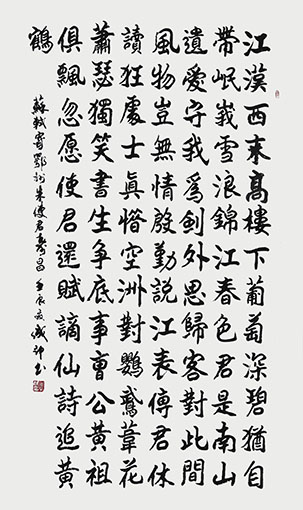 江漢西來高樓下葡萄深碧猶自
帶岷峩雪浪錦江春色君是南山
遺愛守我為劍外思歸客對此間
風物豈無情殷勤説江表傳君休
讀狂處士真惜空洲對鸚鵡葦花
蕭瑟獨笑書生爭底事曹公黃祖
俱飄忽愿使君還賦謫仙詩追黃
鶴
蘇軾寄鄂州朱使君壽昌 壬辰 書